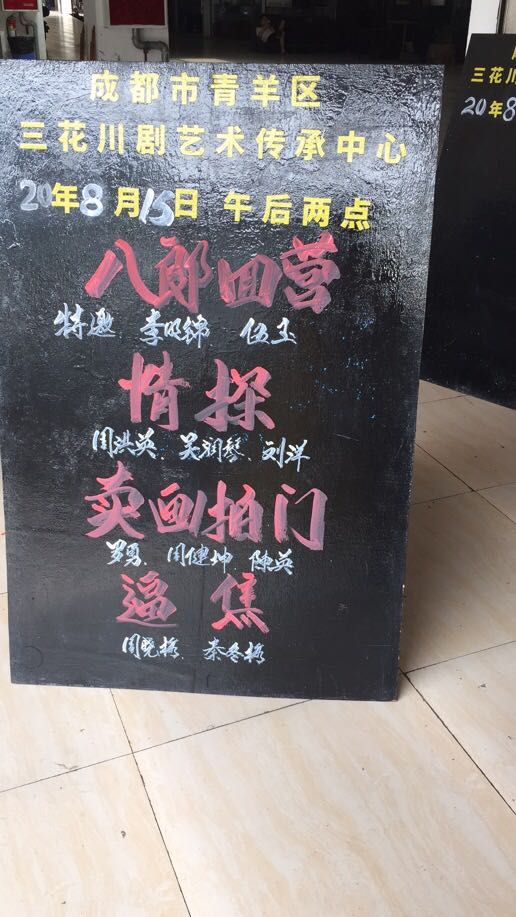 成都市青羊区
三花川剧艺术传承中心
20年8月15日 午后两点
八郎回营
特邀 李明锦 伍玉
情探
周洪英、吴润琴、刘洋
卖画拍门
罗勇、周健坤 陈英
逼焦
周晓梅、秦冬梅
三花川
20年8